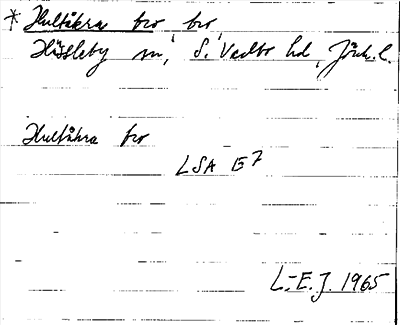 * Hultåkra bro bro,
Hässleby sn, S. Vedbo hd, Jönk. l.
Hultåkra bro
LSA E7
L.-E.J. 1965